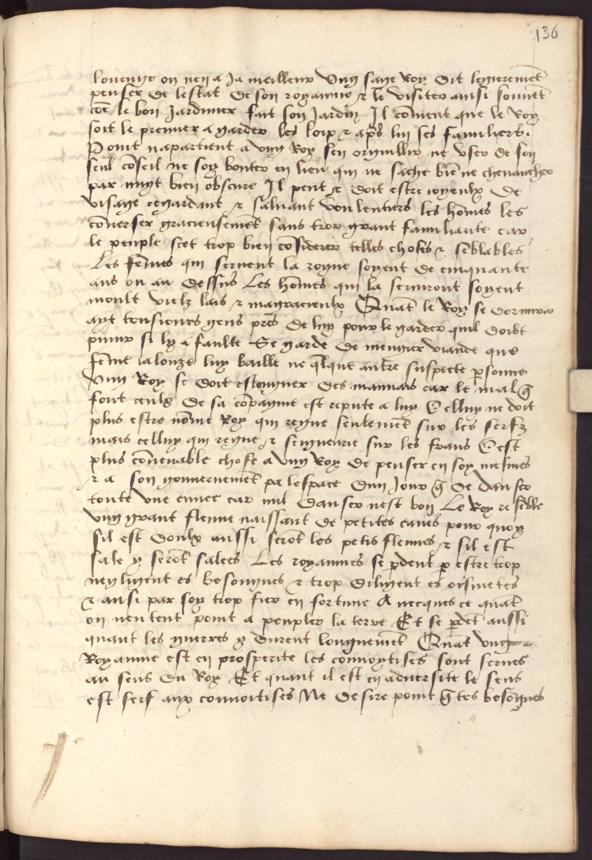 136
louenge on nen a Ja meilleur Ung sage Roy Doit legierement
penser de lestat de son royaume & le visiter ausi souuent
cõe le bon Jardinier fait son Jardin Il conuient que le Roy
soit le premier a garder les loix & apres luy ses familiers.
Point napartient a ung Roy sen orguillir ne user de son
seul cõseil ne soy bouter en lieu qui ne sache biẽ ne cheuaucher
par nuyt bien obscure Il peut & doit estre ioyeulx de
visage regardant & saluant voulentiers les hõmes les
cõuerser gracieusemẽt sans trop grant familiarite car
le peuple scet trop bien cõsiderer telles choses & sẽblables
Les fẽmes qui seruent la royne soyent de cinquante
ans ou au dessus Les hõmes qui la seruiront soyent
moult vielz lais & magracieulx Quãt le Roy se dormira
ayt tousiours gens pres de luy pour le garder quil doibt
punir si lz a faulte Se garde de menger viande que
fẽme ialouze luy baille ne q̃lque autre suspecte p̱sonne
Ung Roy se doit eslongner des mauuais car le mal q̃
font ceulx de sa cõpaignie est repute a luy Celluy ne doit
plus estre nõme Roy qui regne seulemẽt sur les serfz
mais celluy qui regne & seigneurie sur les frans Cest
plus cõuenable chose a ung Roy de penser en soy mesmes
& a son gouuernemẽt p̱ lespace dun Jour q̃ de danser
toute une ennee car nul danser nest bon Le Roy resẽble
ung grant fleuue naissant de petites eaues pour quoy
sil est doulx aussi serõt les petis fleuues & sil est
sale y serõt salees Les royaumes se p̱dent p̱ estre trop
negligent es besoingnes & trop diligent es oisiuetes
& ausi par soy trop fier en fortune Auecques ce quãt
on nentent point a peupler la terre Et se p̱dẽt aussi
quant les guerres y durent longuemẽt Quãt ung
Royaume est en prosperite les conuoytises sont serues
au sens du Roy Et quant il est en aduersite le sens
est serf aux conuoitises Ne desire point q̃ tes besoignes